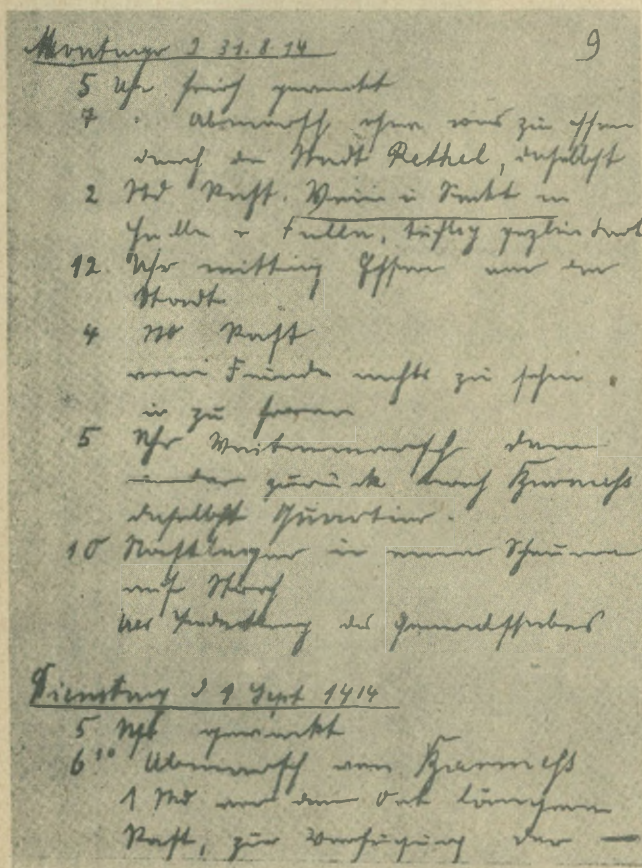 Montag d 31.8.14
9
5 Uhr früh geweckt
7 " Abmarsch ohne was zu essen
durch die Stadt Rethel, daselbst
2 Std Rast. Wein u Sekt in
Hülle u Fülle, tüchtig geplündert
12 Uhr mittag Essen vor der
Stadt
4 Rast
vom Feinde nichts zu sehen
u zu hören
5 Uhr Weitermarsch dann
wieder zurück nach
daselbst Quartier.
10 Nachtlager in einer Scheune
auf Stroh
des
Dienstag d 1 Sept 1914
5 Uhr geweckt
6¹⁰ Abmarsch von
1 Std vor dem Ort längere
Rast, zur Verfügung der —